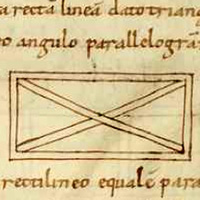 a recta linea dato trian
o angulo parallelogra
rectilineo equale para